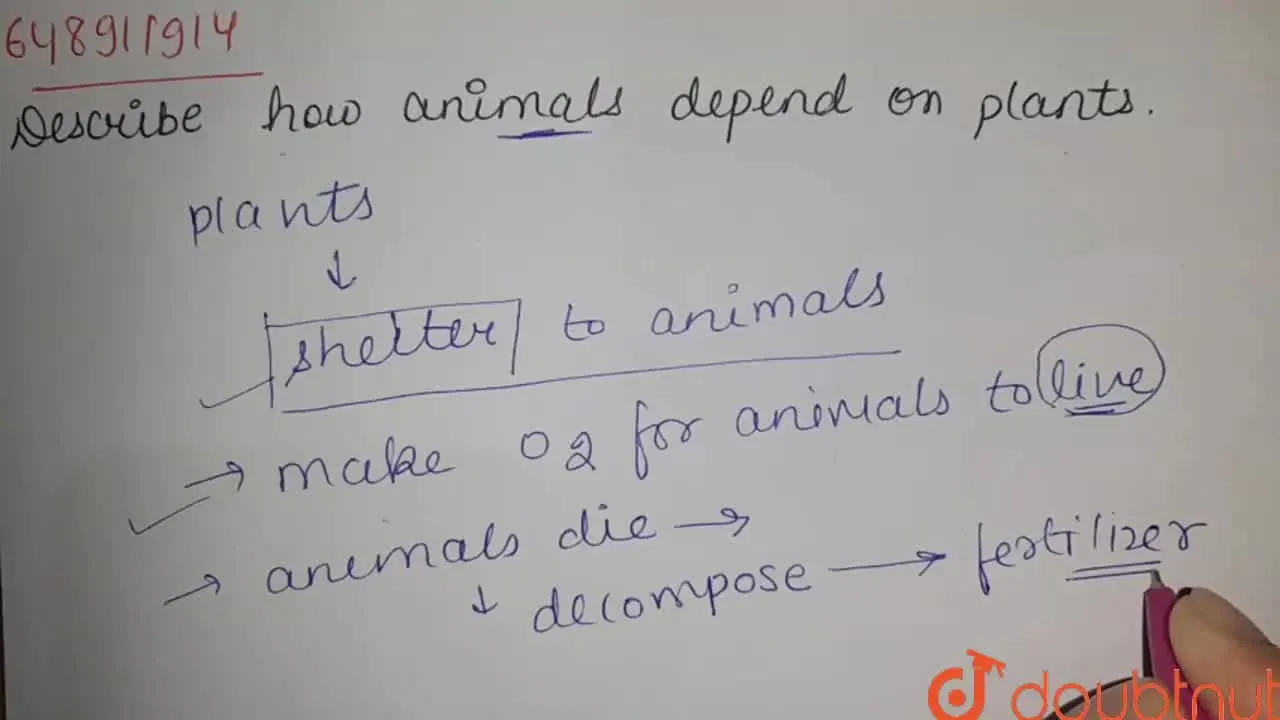 648911914
Describe how animals depend on plants.
plants
↓
shelter to animals
→ make O2 for animals to live
→ animals die →
↓ decompose → fertilizer
doubtnut